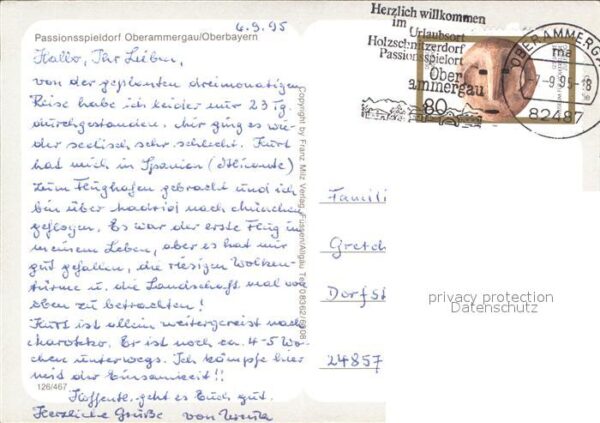 6.9.95
Passionsspieldorf Oberammergau/Oberbayern
Hallo, Ihr Lieben,
von der geplanten dreimonatigen
Reise habe ich leider nur 23 Tg.
durchgestanden. Mir ging es wie-
der seelisch sehr schlecht. Kurt
hat mich in Spanien (Alicante)
zum Flughafen gebracht und ich
bin über Madrid nach München
geflogen. Es war der erste Flug in
meinem Leben, aber es hat mir
gut gefallen, die riesigen Wolken-
türme u. die Landschaft mal von
oben zu betrachten!
Kurt ist allein weitergereist nach
Marokko. Er ist noch ca. 4-5 Wo-
chen unterwegs. Ich kämpfe hier
mit der Einsamkeit!!
126/467
Hoffentl. geht es Euch gut.
Herzliche Grüße von Ursula
Copyright by Franz Milz Verlag, Füssen/Allgäu Tel. 08362/6908
Herzlich willkommen
im
Urlaubsort
Holzschnitzerdorf
Passionsspielort
Ober
ammergau
80
OBERAMMERGA
ma
-7-9.95-18
82487
Famili
Gretch
Dorfst
24857
privacy protection
Datenschutz